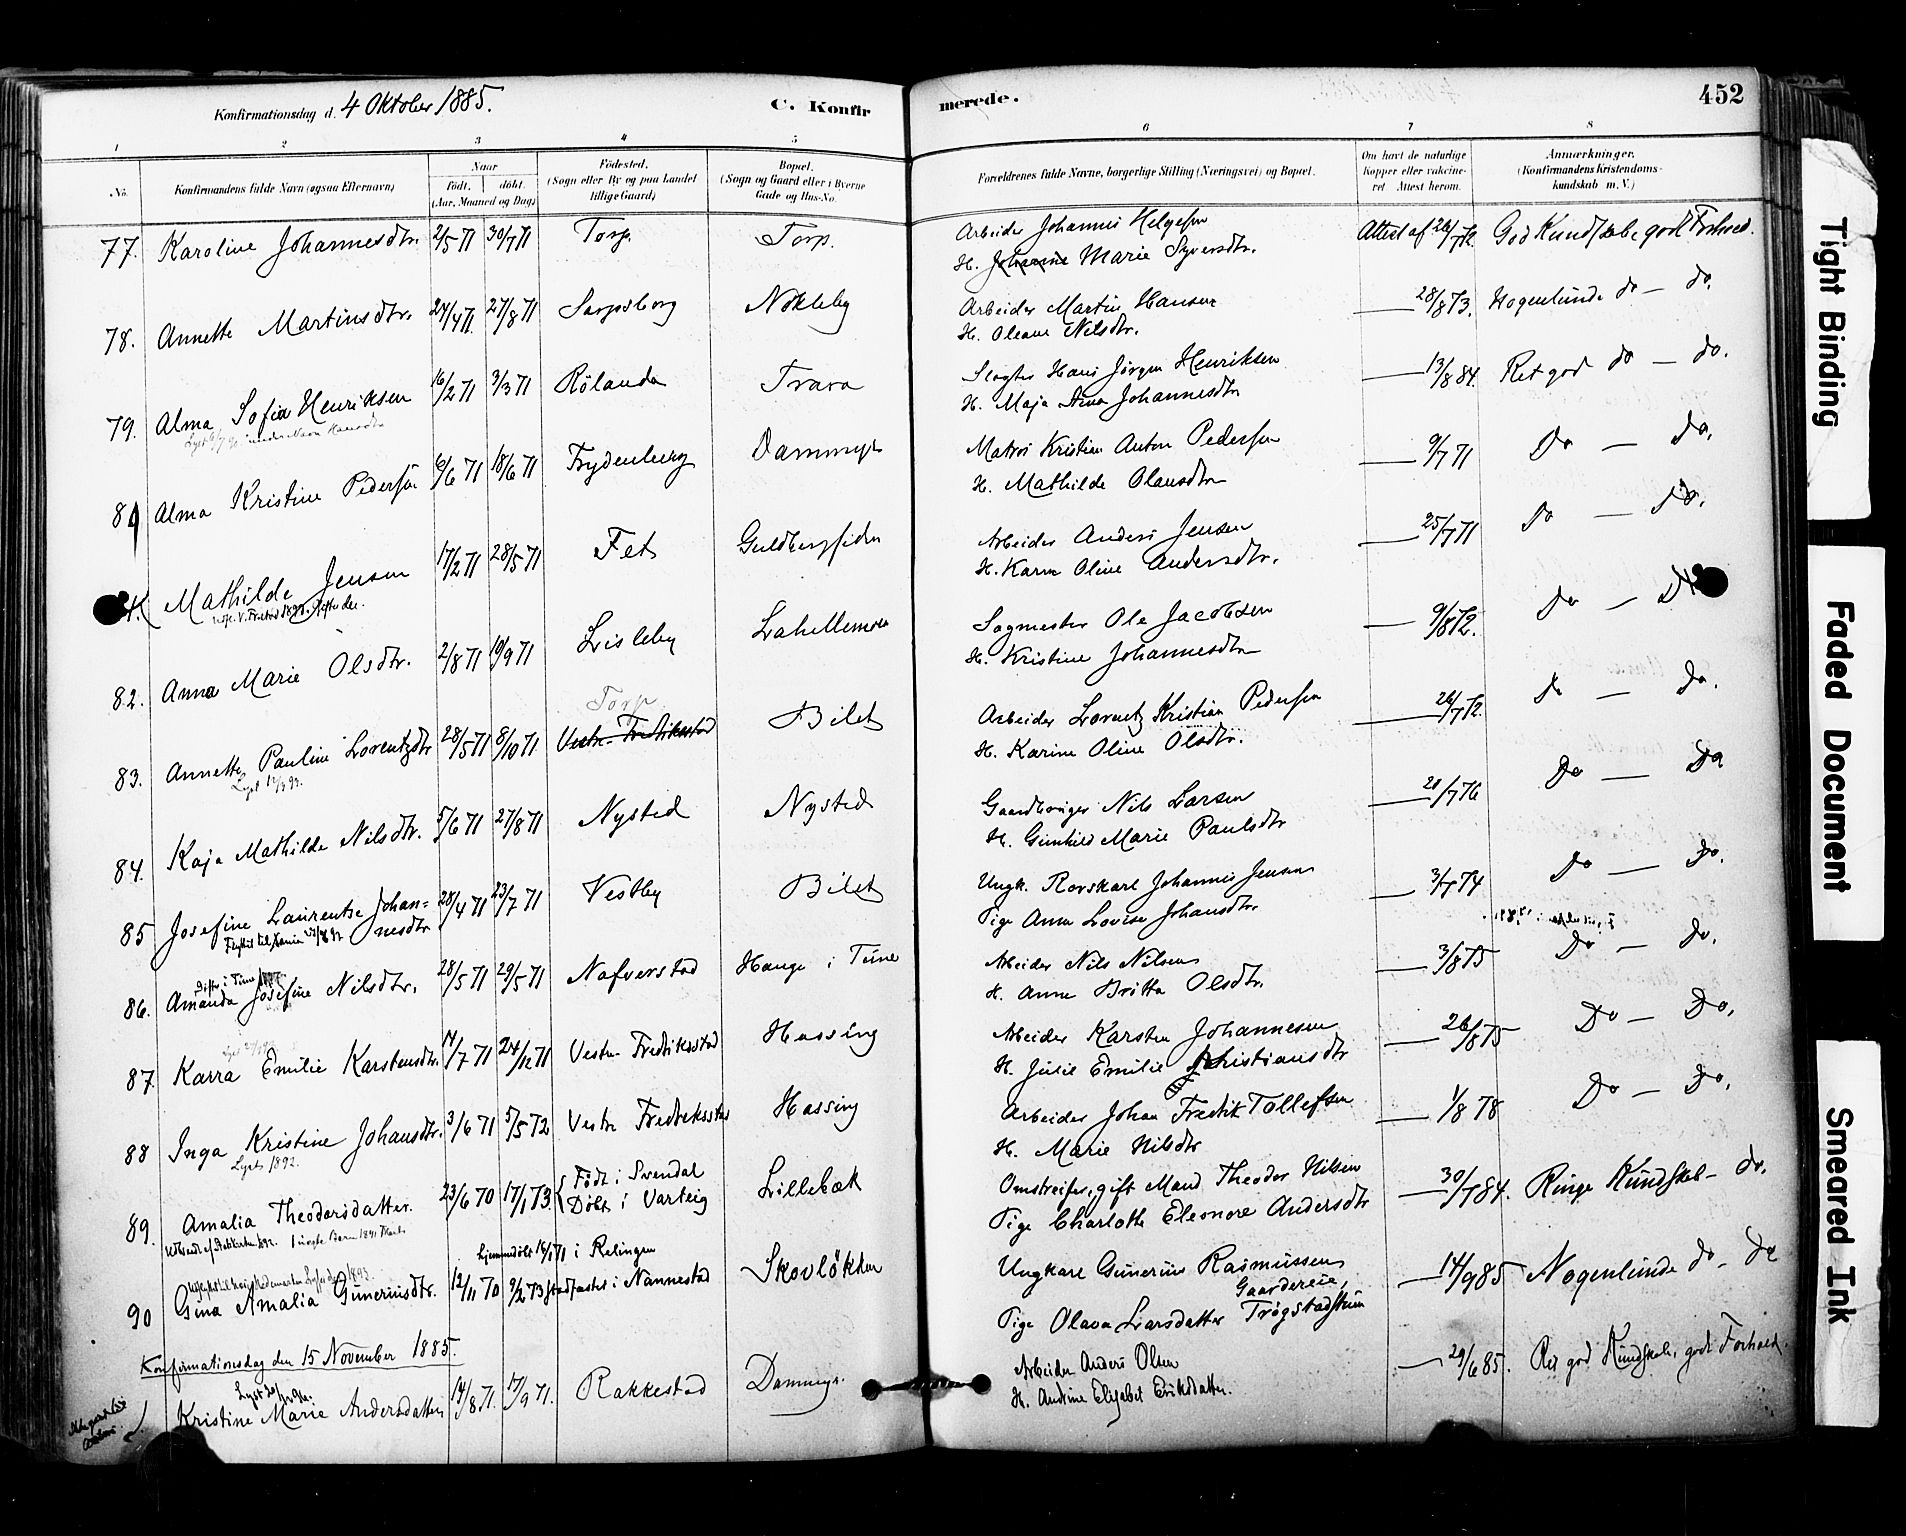 Konfirmationsdag d. 4 Oktober 1885.
C. Konfir
merede.
452
1 2 3 4 5 6 7 8
No.
Konfirmandens fulde Navn (ogsaa Efternavn)
Naar
født. døbt.
(Aar, Maaned og Dag)
Fødested.
(Sogn eller By og paa Landet
tillige Gaard)
Bopæl.
(Sogn og Gaard eller i Byerne
Gade og Hus-No.
Forældrenes fulde Navne, borgerlige Stilling (Næringsvei) og Bopæl.
Om havt de naturlige
Kopper eller vakcine-
ret Attest herom.
Anmærkninger.
(Konfirmandens kristendoms-
kundskab m. V.)
77. Karoline Johannesdtr. 2/5 71 30/7 71 Torp. Torp. Arbeider Johannes Helgesen Attest af 26/7 72. God Kundskab godt Forhold.
H. Johanne Marie Syversdtr.
78. Annette Martinsdtr. 24/4 71. 27/8 71 Sarpsborg Nokleby Arbeider Martin Hansen 28/8 73. Nogenlunde do — do.
H. Oleane Nilsdtr.
79. Alma Sofia Henriksen 16/2 71 3/3 71 Rölanda Trara Slagter Hans Jörgen Henriksen 13/8 84. Ret god do — do.
H. Maja Johannesdtr
Alma Kristine Pedersen 6/6 71 18/6 71 Frydenberg Dammyr Matros Kristian Anton Pedersen 9/7 71 Do — Do.
H. Mathilde Olausdtr
Mathilde Jensen 17/2 71 28/5 71 Fet Guldbergsiden Arbeider Anders Jensen 25/7 71 Do — Do.
H. Karen Oline Andersdtr.
82. Anna Marie Olsdtr. 2/8 71 10/9 71 Lisleby Lahellemoen Sagmester Ole Jacobsen 9/8 72. Do — Do
H. Kristine Johannesdtr
Torp
83. Annette Pauline Lorentzdtr 28/5 71 8/10 71 Vestr. Fredrikstad Bilet Arbeider Lorentz Kristian Pedersen 26/7 72. Do — Do.
H. Karine Oline Olsdtr.
84. Kaja Mathilde Nilsdtr. 5/6 71 27/8 71 Nysted Nysted Gaardbruger Nils Larsen 21/7 76 Do — Do
H. Gunhild Marie Paulsdtr
85 Josefine Laurentse Johan= 28/4 71 23/7 71 Vestby Bilet Ungk. Rorskarl Johannes Jensen 3/7 74 Do — Do.
nesdtr Pige Anna Lovise Johansdtr.
86. Amanda Josefine Nilsdtr. 28/5 71 29/5 71 Nafverstad Hauge i Tune Arbeider Nils Nilsen 3/8 75 Do — Do.
H. Anne Britta Olsdtr.
87. Karra Emilie Karstensdtr. 14/7 71 24/12 71 Vestre Fredriksstad Hassing Arbeider Karsten Johannesen 26/8 75 Do — Do.
H. Julie Emilie Kristiansdtr
88 Inga Kristine Johansdtr. 3/6 71 5/5 72 Vestre Fredriksstad Hassing Arbeider Johan Fredrik Tollefsen 1/8 78 Do — Do.
Lyst 1892.
H. Marie Nilsdtr
89. Amalia Theodorsdatter. 23/6 70 17/1 73. Födt i Svendal Lillebæk Omstreifer, gift Mand Theodor Nilsen 30/7 84. Ringe Kundskab — do.
Döbt i Varteig
Pige Charlotte Eleonore Andersdtr
hjemmedöbt 18/1 71 i Relingen
90 Gina Amalia Guneriusdtr. 12/11 70 9/2 73 stadfæstet i Nannestad Skovlökken Ungkarl Gunerius Rasmussen 14/9 85 Nogenlunde do — do
Gaardereie,
Pige Olava Larsdatter Trögstadstrøm
Konfirmationsdag den 15 November 1885.
Kristine Marie Andersdatter 14/8 71. 17/9 71. Rakkestad Dammyr. Arbeider Anders Olsen 29/6 85. Ret god Kundskab, godt Forhold.
H. Andrine Elisabet Eriksdatter.
Tight Binding
Faded Document
Smeared Ink